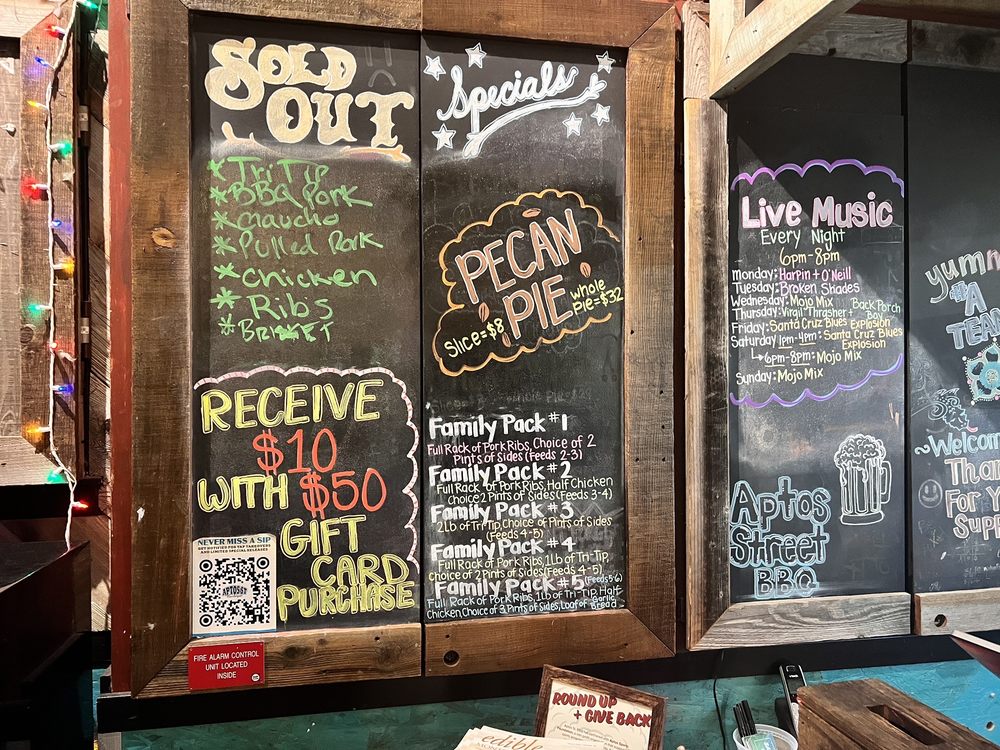 SOLD
OUT
* Tri Tip
* BBQ Pork
* Gaucho
* Pulled Pork
* Chicken
* Ribs
* BRISKET
RECEIVE
$10
WITH $50
GIFT
CARD
PURCHASE
NEVER MISS A SIP
GET NOTIFIED FOR TAP TAKEOVERS
AND LIMITED SPECIAL RELEASES
APTOSST
FIRE ALARM CONTROL
UNIT LOCATED
INSIDE
Specials
PECAN
PIE
Slice=$8
whole
pie=$32
Family Pack #1
Full Rack of Pork Ribs, Choice of 2
Pints of Sides (Feeds 2-3)
Family Pack #2
Full Rack of Pork Ribs, Half Chicken
Choice 2 Pints of Sides (Feeds 3-4)
Family Pack #3
2 lb of Tri-Tip, Choice of Pints of Sides
(Feeds 4-5)
Family Pack #4
Full Rack of Pork Ribs, 1 lb of Tri-Tip,
Choice of 2 Pints of Sides (Feeds 4-5)
Family Pack #5 (Feeds 5-6)
Full Rack of Pork Ribs, 1 lb of Tri-Tip, Half
Chicken, Choice of 3 Pints of Sides, Loaf of Garlic Bread
Live Music
Every Night
6pm-8pm
Monday: Harpin + O'Neill
Tuesday: Broken Shades
Wednesday: Mojo Mix
Thursday: Virgil Thrasher + Back Porch Boy
Friday: Santa Cruz Blues Explosion
Saturday 1pm-4pm: Santa Cruz Blues
Explosion
6pm-8pm: Mojo Mix
Sunday: Mojo Mix
Aptos
Street
BBQ
yumm
#A
TEA
~Welcom
Than
For Y
Supp
ROUND UP
+ GIVE BACK
edible